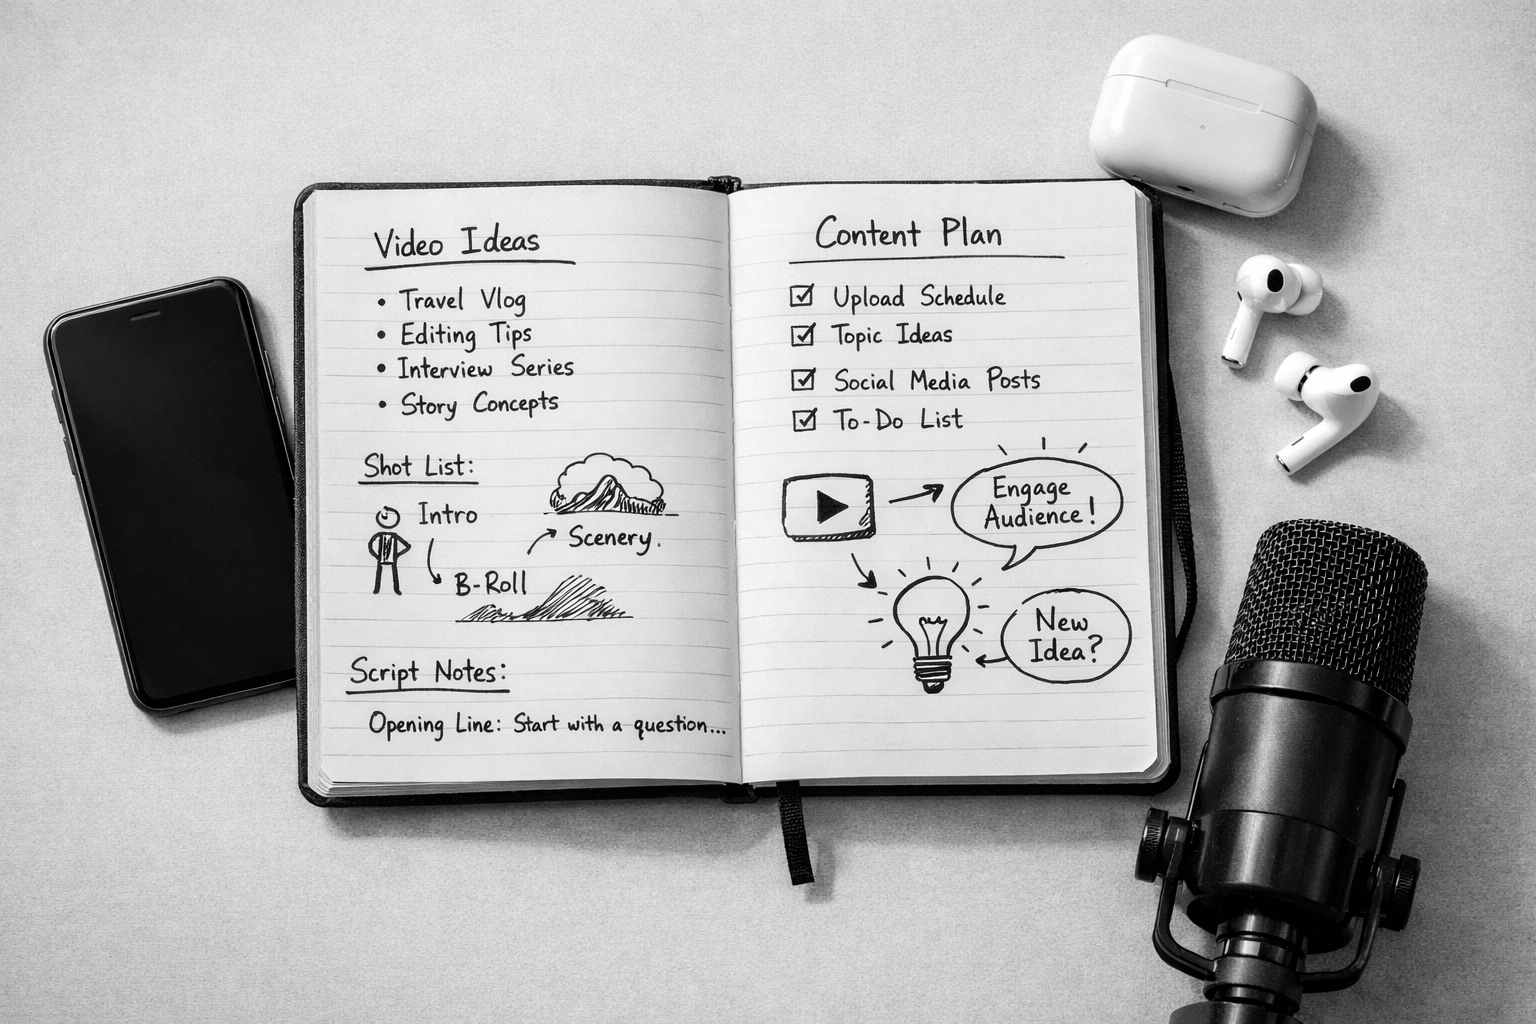 Video Ideas
• Travel Vlog
• Editing Tips
• Interview Series
• Story Concepts
Shot List:
Intro
Scenery.
B-Roll
Script Notes:
Opening Line: Start with a question...
Content Plan
Upload Schedule
Topic Ideas
Social Media Posts
To-Do List
Engage
Audience!
New
Idea?